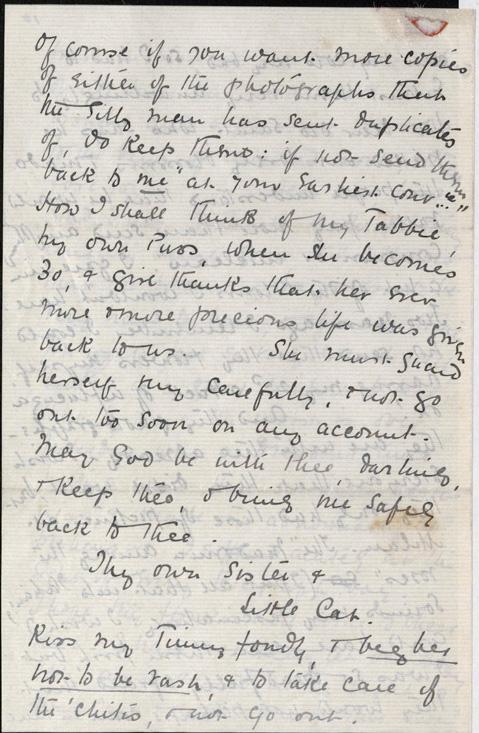 of course if you want more copies
of either of the photographs than
the silly man has sent duplicates
of, do keep them: if not send them
back to me "at your earliest conv...ce"
How I shall think of my Tabbie,
my own Puss, when she becomes
30, & give thanks that her ever
more & more precious life was given
back to us. She must guard
herself very carefully, & not go
out too soon on any account.
May God be with thee, darling,
& keep thee, & bring me safely
back to thee.
Thy own Sister &
Little Cat.
Kiss my Tinny fondly, & beg her
not to be rash, & to take care of
the 'chitis, & not go out.